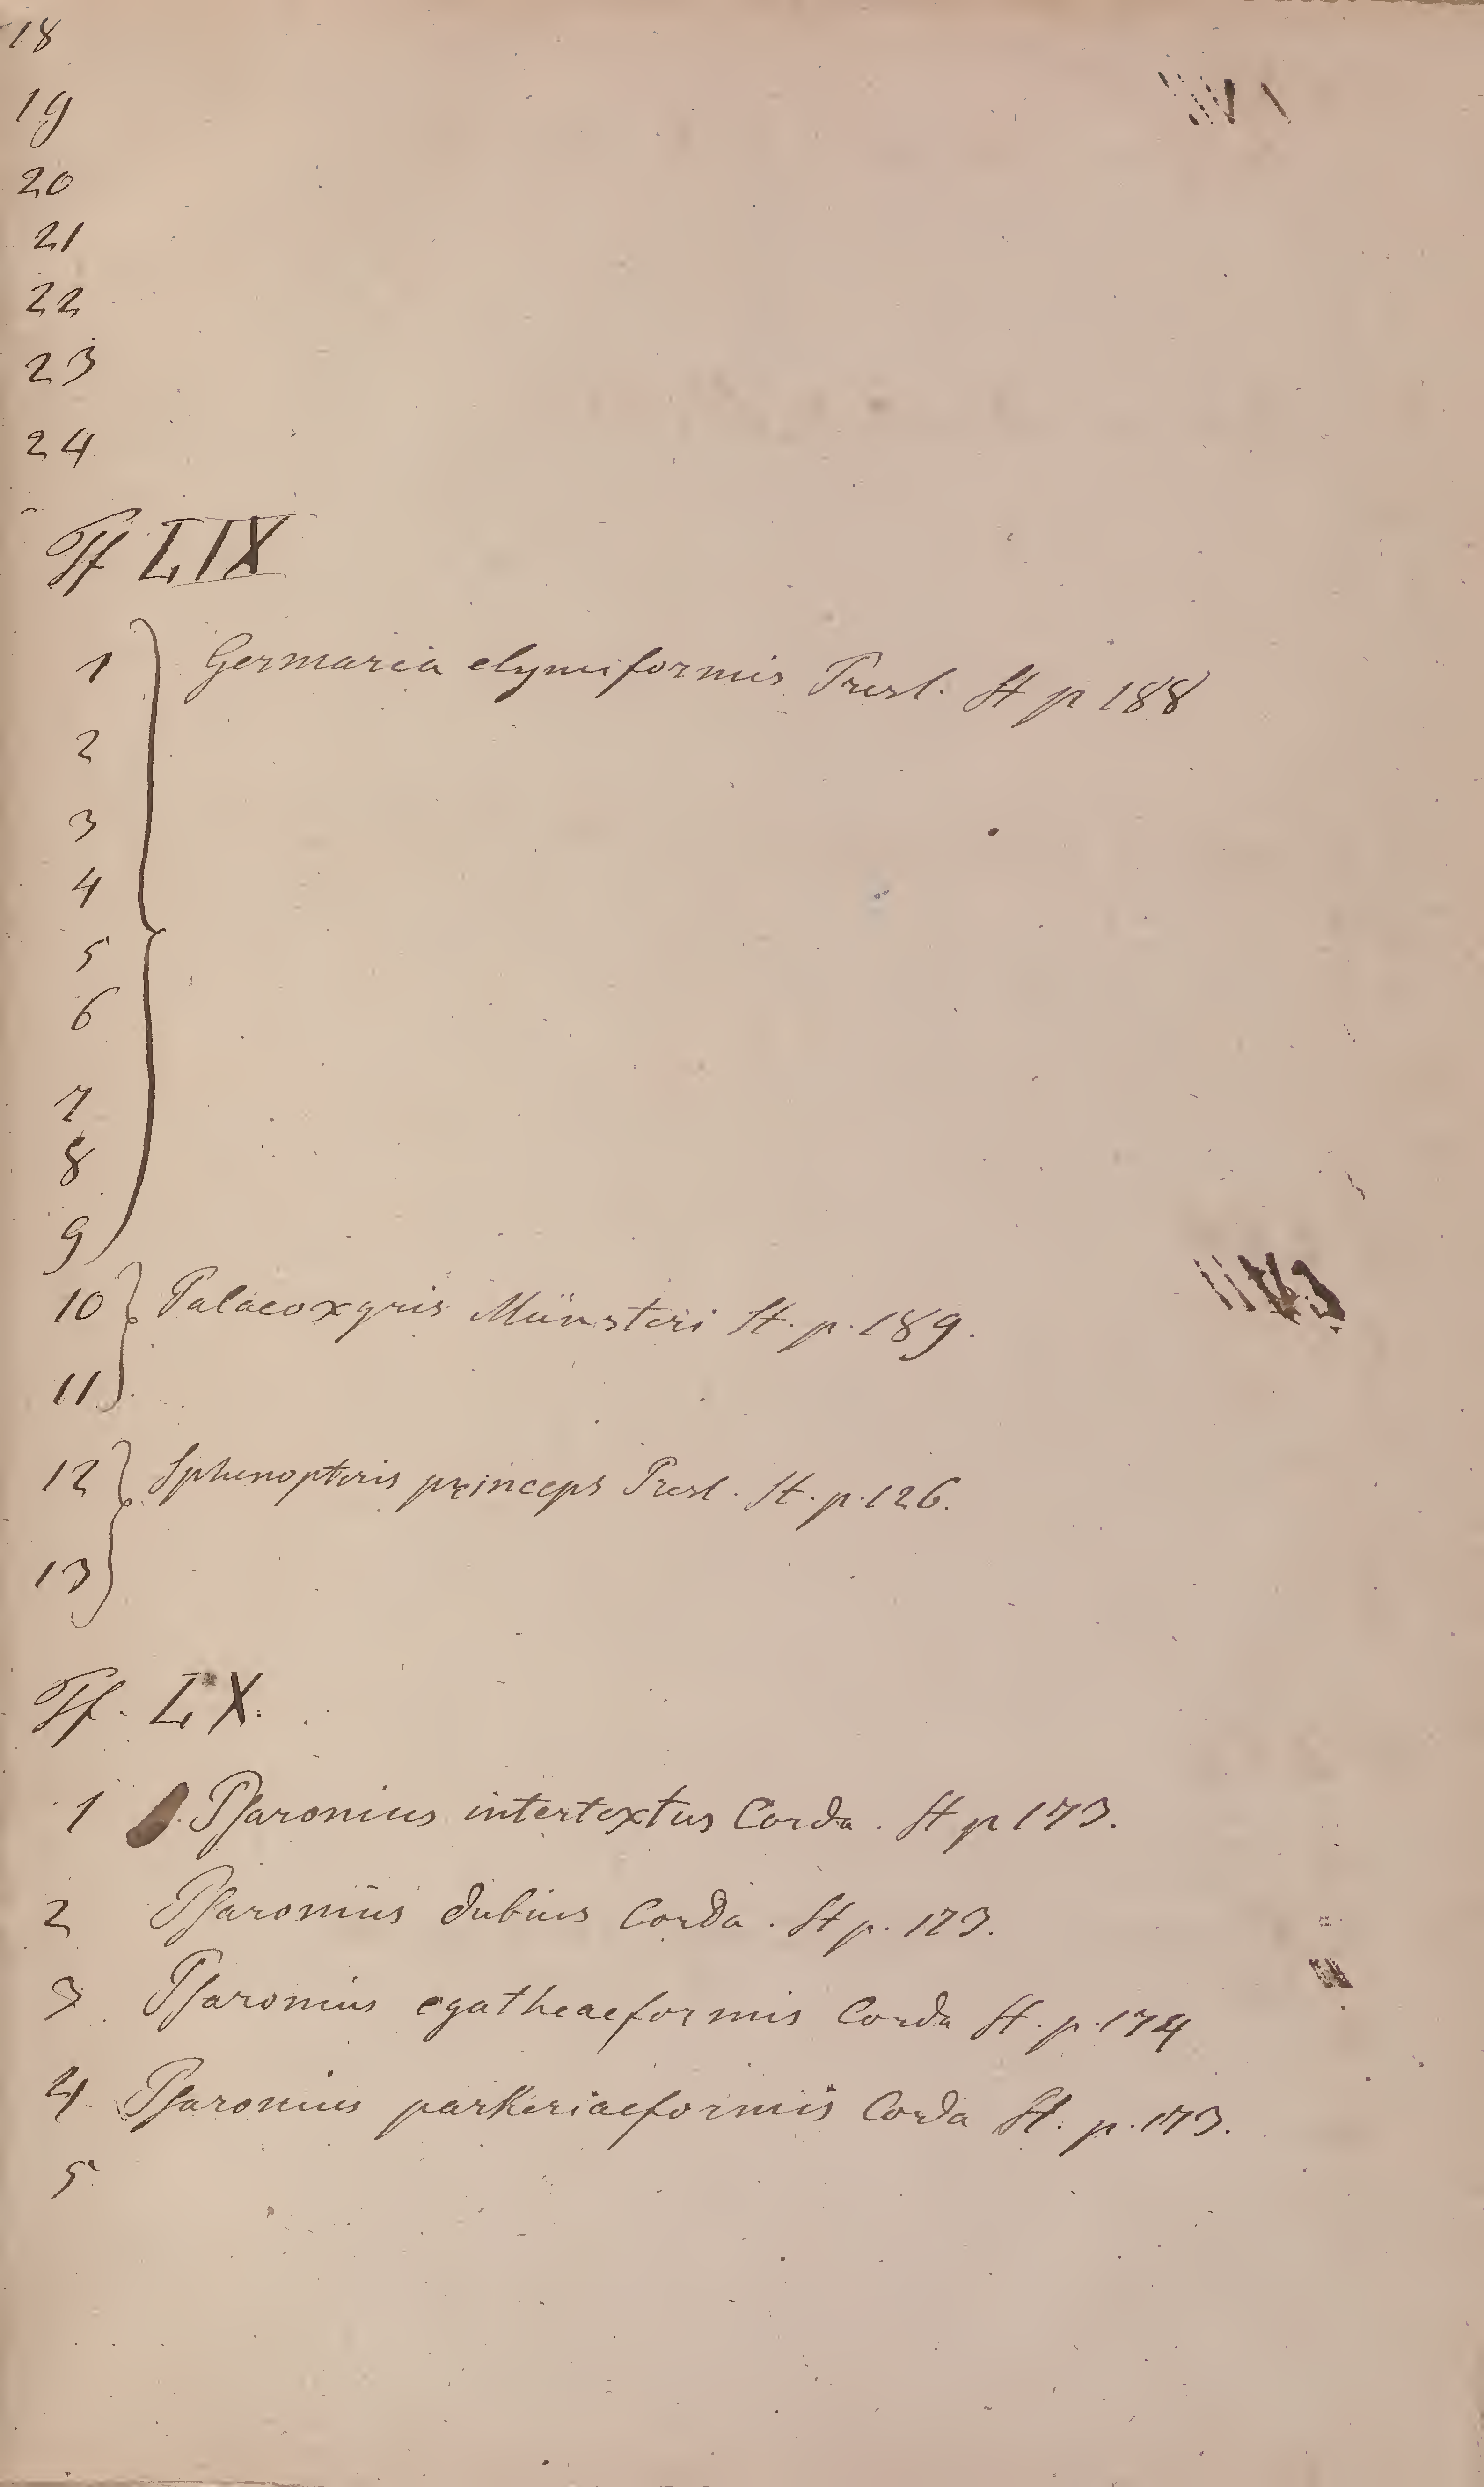 18
19
20
21
22
23
24
Tf LIX
1 Germaria elymiformis Presl. St p 188
2
3
4
5
6
7
8
9
10 Palaeoxyris Münsteri St. p. 189.
11
12 Sphenopteris princeps Presl. St. p. 126.
13
Tf. LX.
1 Psaronius intertextus Corda. St p 173.
2 Psaronius dubius Corda. St p. 173.
3 Psaronius cyatheaeformis Corda St. p. 174
4 Psaronius parkeriaeformis Corda St. p. 173.
5